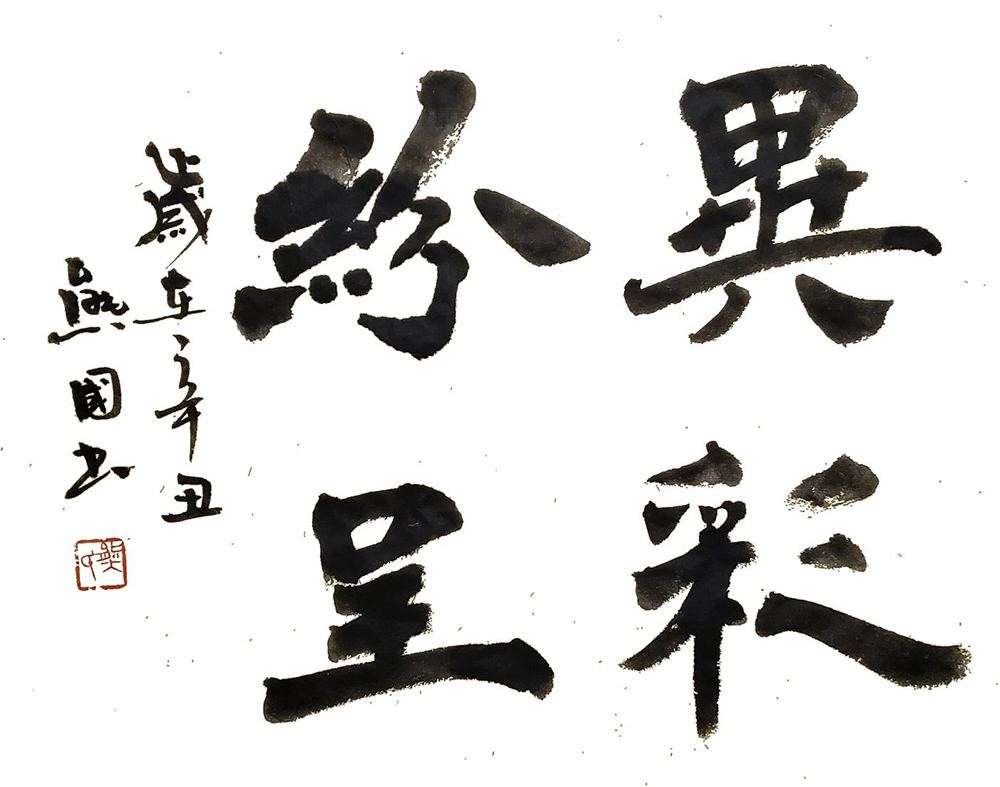 異彩
紛呈
歲在辛丑
熊國书